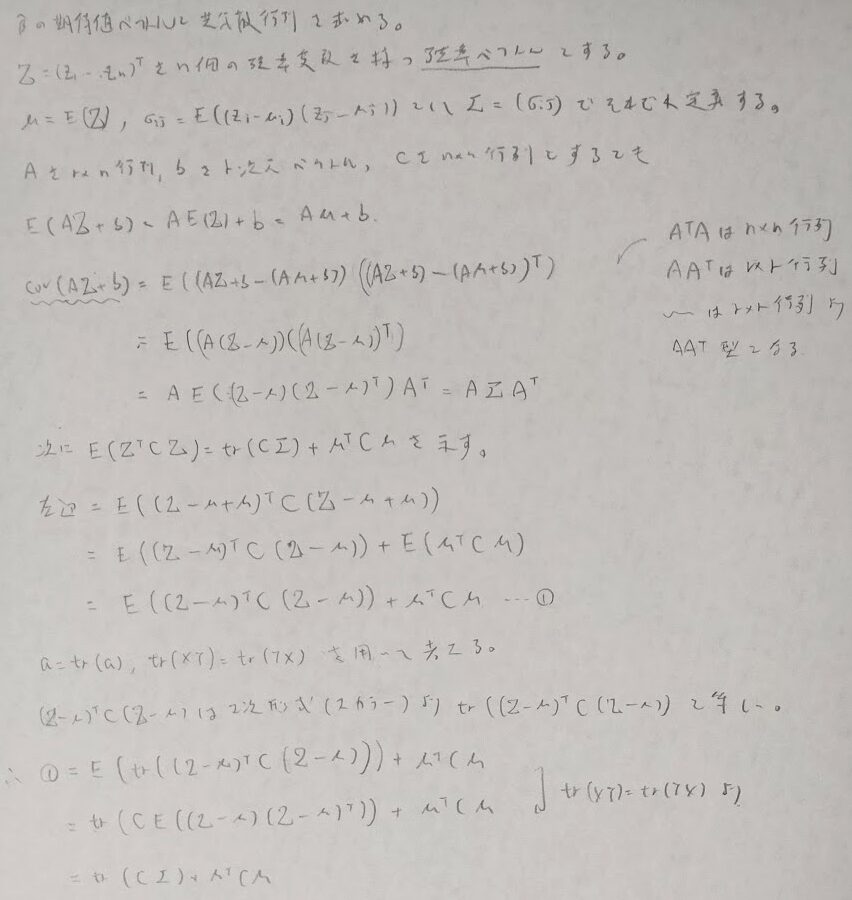 βの期待値ベクトルと共分散行列を求める。
Z=(Z₁…Zn)ᵀをn個の確率変数を持つ確率ベクトルとする。
μ=E(Z), σij=E((Zi-μi)(Zj-μj))とし Σ=(σij)でそれぞれ定義する。
Aをr×n行列, bをr次元ベクトル, Cをn×n行列とするとき
E(AZ+b)=AE(Z)+b=Aμ+b.
cov(AZ+b)=E((AZ+b-(Aμ+b))((AZ+b)-(Aμ+b))ᵀ)
=E((A(Z-μ))(A(Z-μ))ᵀ)
=AE((Z-μ)(Z-μ)ᵀ)Aᵀ=AΣAᵀ
AᵀAはn×n行列
AAᵀはr×r行列
〜はr×r行列より
AAᵀ型となる
次にE(ZᵀCZ)=tr(CΣ)+μᵀCμを示す。
左辺=E((Z-μ+μ)ᵀC(Z-μ+μ))
=E((Z-μ)ᵀC(Z-μ))+E(μᵀCμ)
=E((Z-μ)ᵀC(Z-μ))+μᵀCμ …①
a=tr(a), tr(XY)=tr(YX)を用いて考える。
(Z-μ)ᵀC(Z-μ)は2次形式(スカラー)より tr((Z-μ)ᵀC(Z-μ))と等しい。
∴ ①=E(tr((Z-μ)ᵀC(Z-μ)))+μᵀCμ
=tr(CE((Z-μ)(Z-μ)ᵀ))+μᵀCμ tr(XY)=tr(YX)より
=tr(CΣ)+μᵀCμ